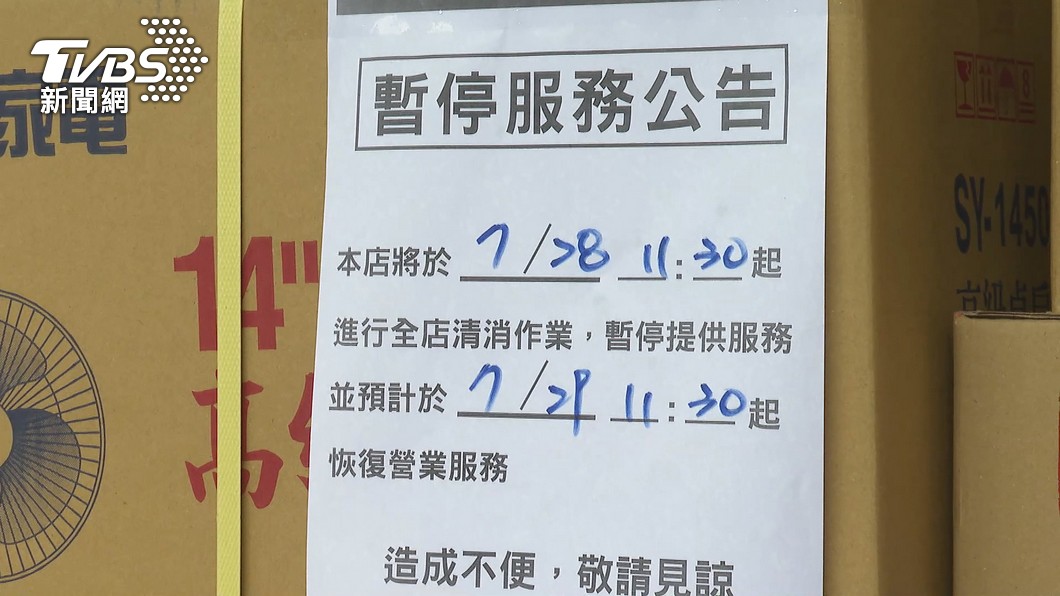 TVBS
新聞網
家電
暫停服務公告
本店將於 7/28 11:30起
進行全店清消作業，暫停提供服務
並預計於 7/29 11:30起
恢復營業服務
造成不便，敬請見諒
14"
高級
SY-1450